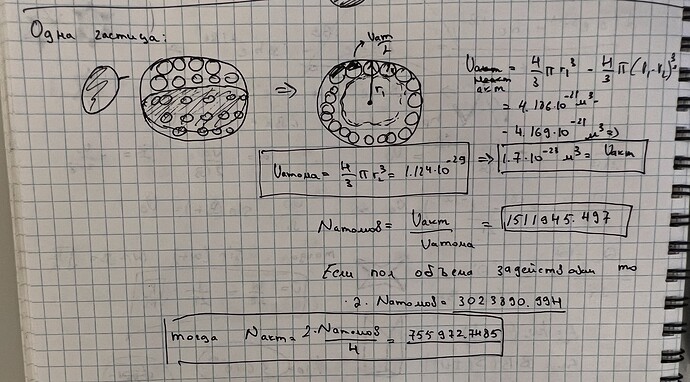 Одна частица:
Vат/2
r₁
Vакт = 4/3 π r₁³ - 4/3 π (r₁-r₂)³
= 4.186·10⁻²¹ м³ -
- 4.169·10⁻²¹ м³ =>
Vатома = 4/3 π r₂³ = 1.124·10⁻²⁹ => 1.7·10⁻²³ м³ = Vакт
Nатомов = Vакт/Vатома = 1511945.497
Если пол объема задействован то
2. Nатомов = 3023890.994
тогда Nакт = 2·Nатомов/4 = 755972.7485